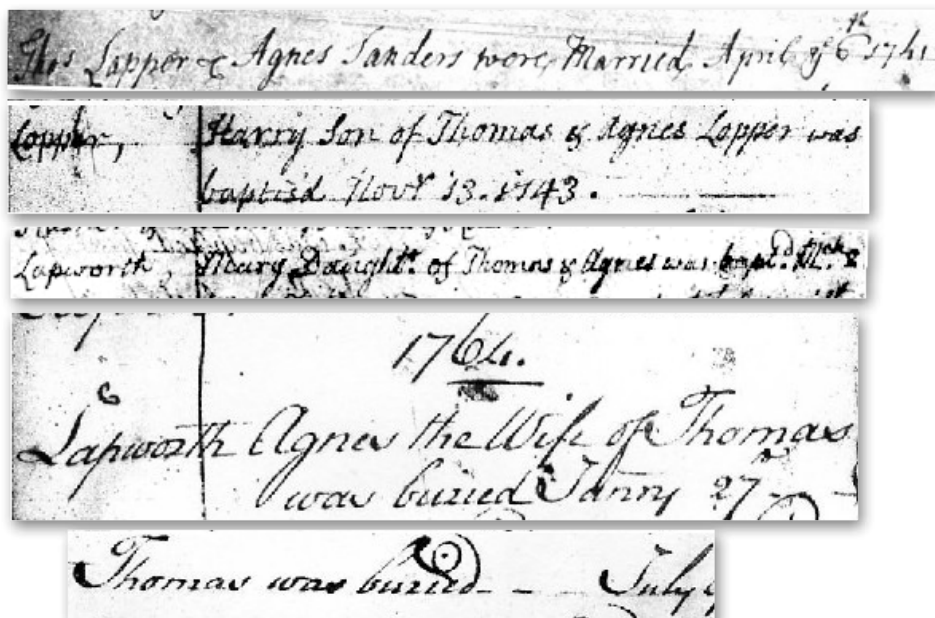 Thos Lapper & Agnes Sanders were Married April ye 6th 1741
Lopper, Harry Son of Thomas & Agnes Lopper was
baptis'd Novr 13. 1743.
Lapworth, Mary Daughtr. of Thomas & Agnes was bapt.d
1764.
Lapworth Agnes the Wife of Thomas
was buried Janry 27
Thomas was buried - - July